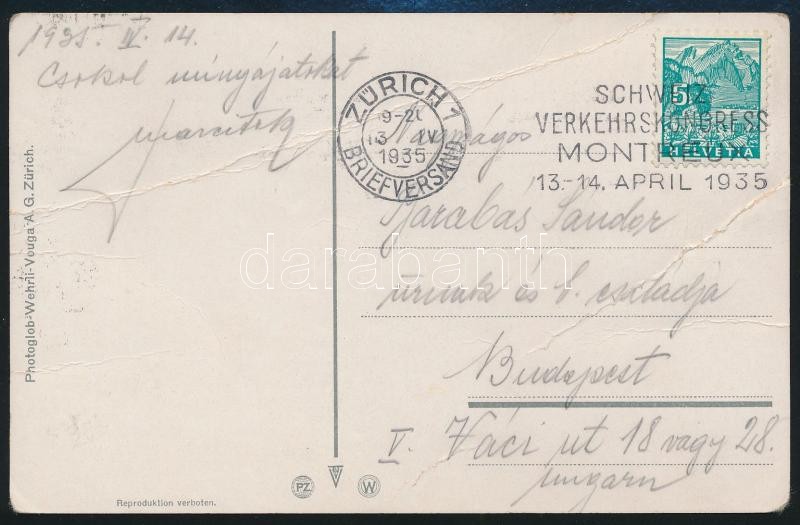 1935. IV. 14.
Csokol minyájatokat
ZÜRICH 1
1935
BRIEFVERSAND
5
HELVETIA
SCHWEIZ.
VERKEHRSKONGRESS
MONTREUX
13.-14. APRIL 1935
Nagyságos
Barabás Sándor
úrnak és b. családja
Budapest
V. Váci ut 18 vagy 28.
Ungarn
Photoglob-Wehrli-Vouga A. G. Zürich.
PZ
W
Reproduktion verboten.
darabanth